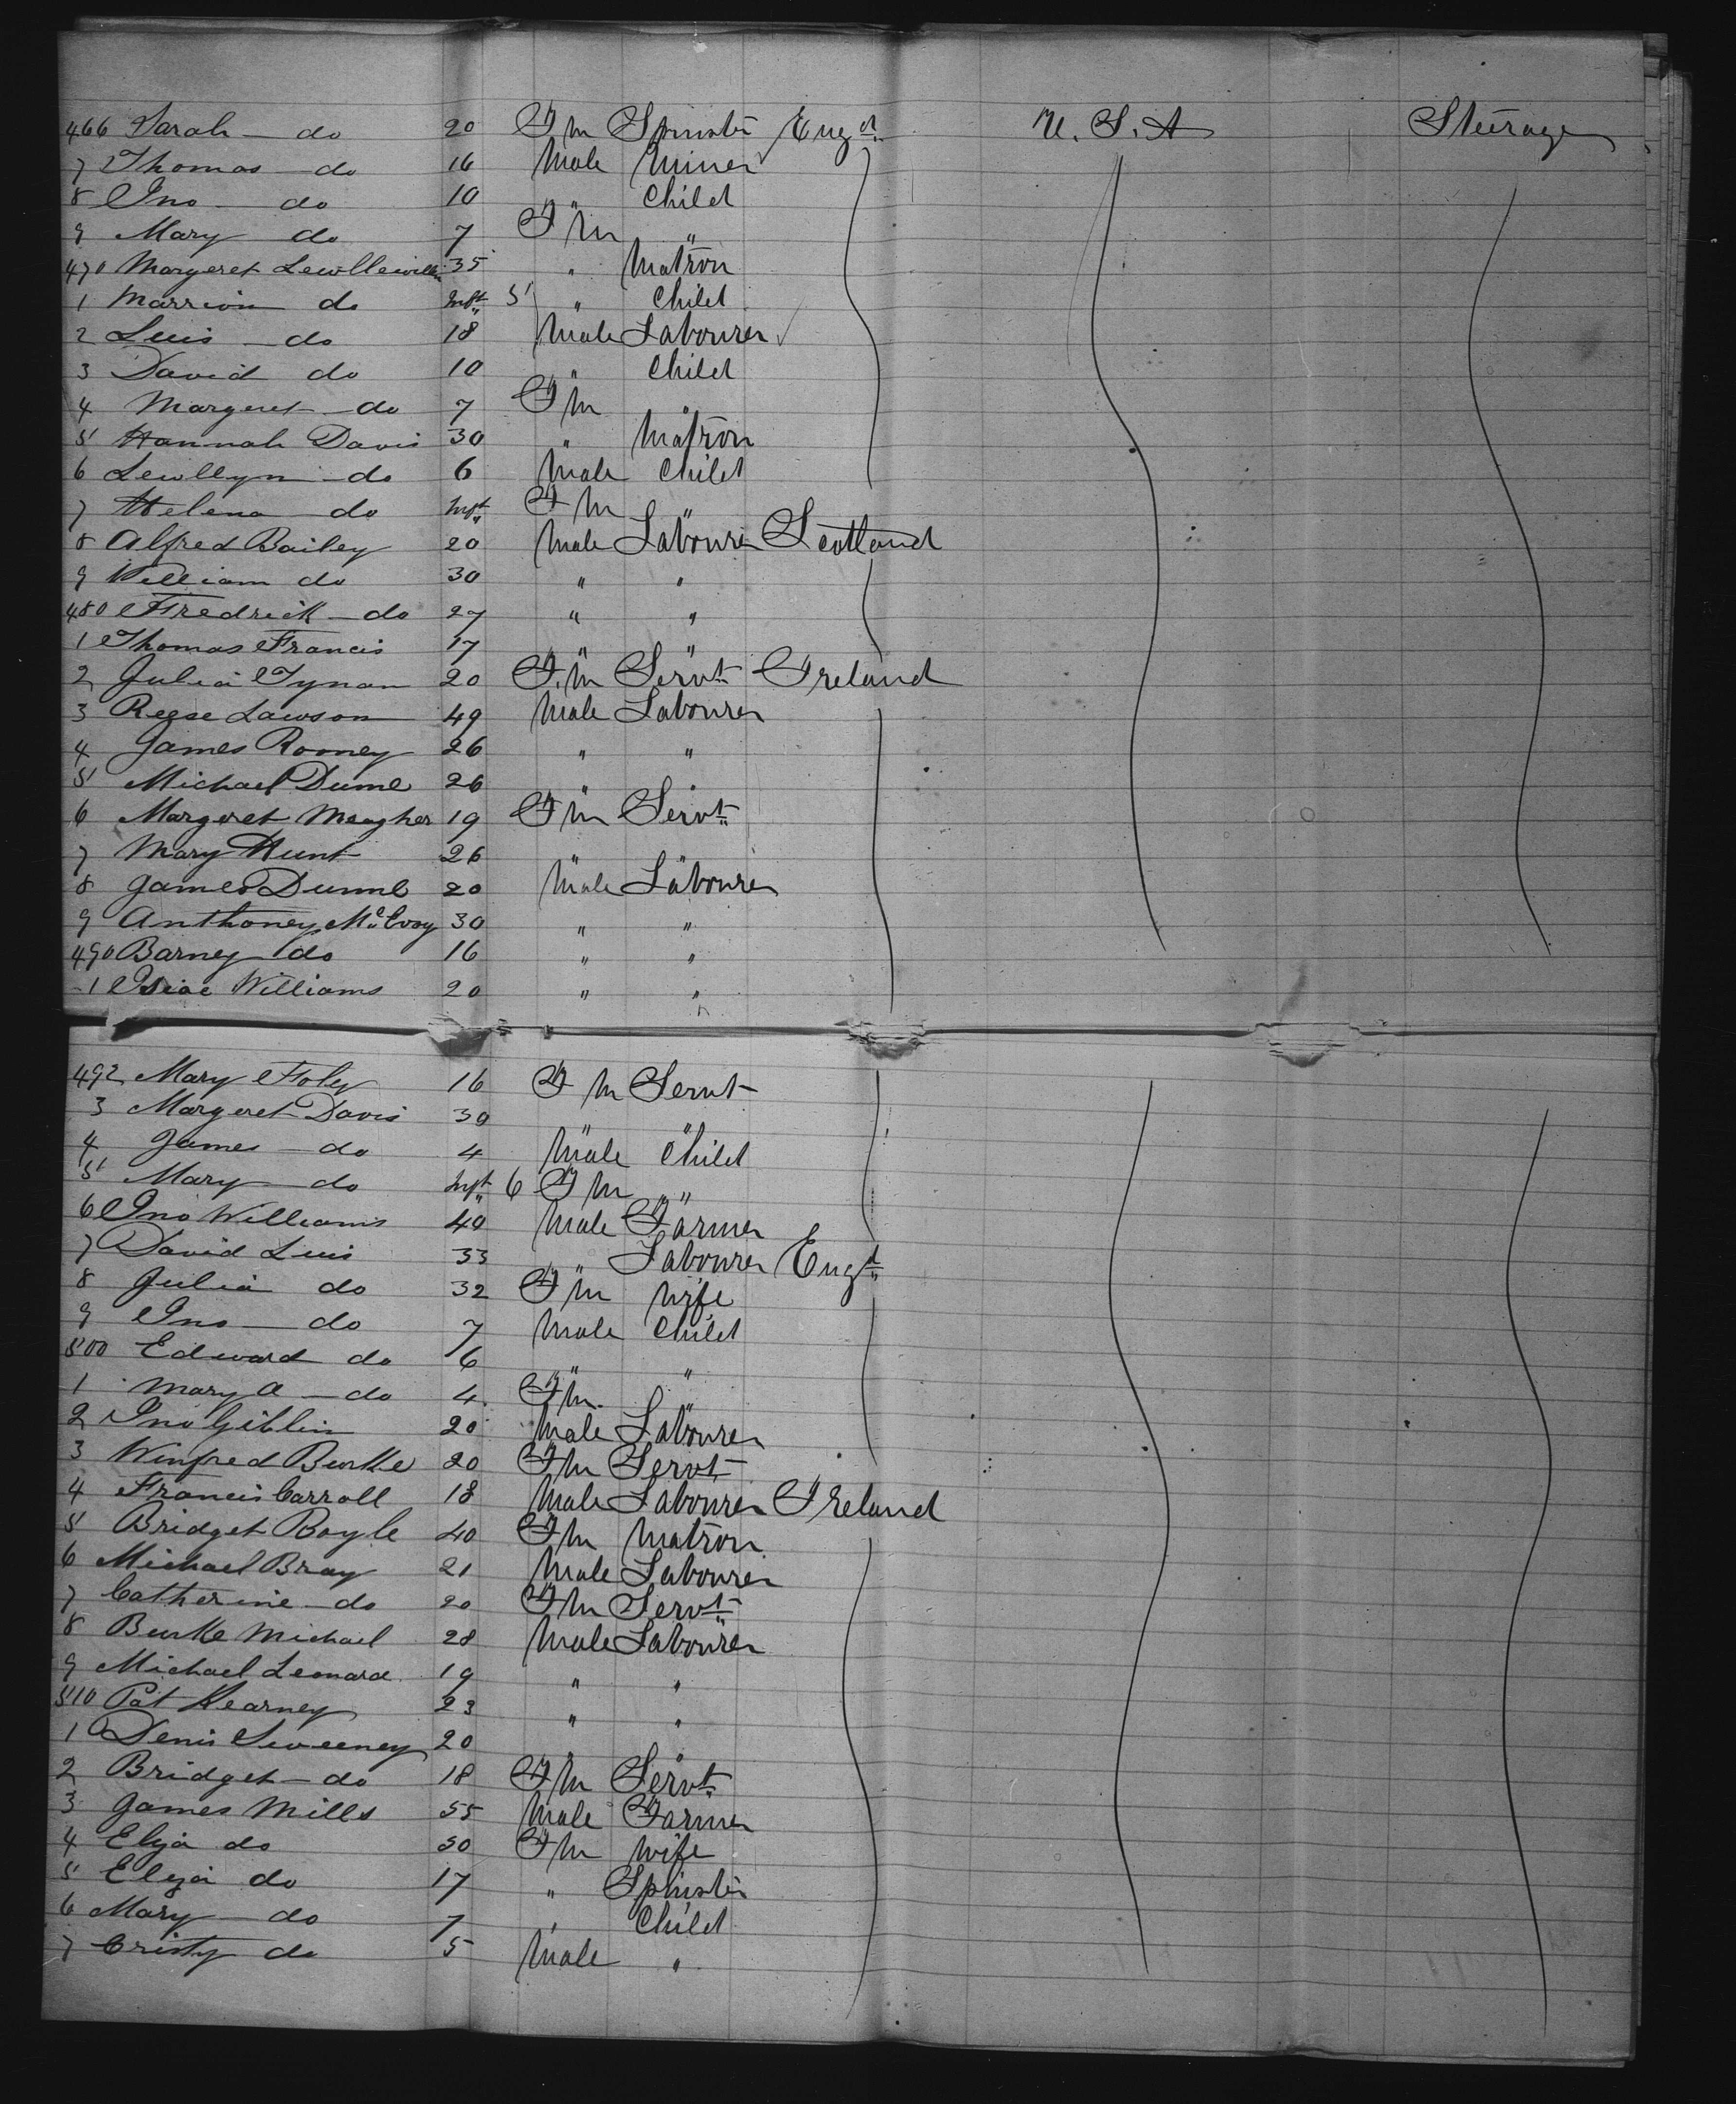 466 Sarah — do 20 Fm Spinster Engd U. S. A Steerage
7 Thomas — do 16 Male Miner
8 Jno — do 10 " " Child
9 Mary do 7 Fm "
470 Margeret 35 " Matron
1 Marrion do Inft 5 " Child
2 Luis — do 18 Male Labourer
3 David do 10 " Child
4 Margeret — do 7 Fm "
5 Hannah Davis 30 " Matron
6 Lewllyn — do 6 Male Child
7 Helena — do Inft Fm "
8 Alfred Bailey 20 Male Labourer Scotland
9 William do 30 " "
480 Fredrick — do 27 " "
1 Thomas Francis 17 " "
2 Julia Tynan 20 Fm Servt Ireland
3 Reese Lawson 49 Male Labourer
4 James Rooney 26 " "
5 Michael Dunne 26 " "
6 Margeret Meagher 19 Fm Servt
7 Mary Hunt 26 " "
8 James Dunne 20 Male Labourer
9 Anthoney McEvoy 30 " "
490 Barney do 16 " "
1 Isiac Williams 20 " "
492 Mary Foley 16 Fm Servt
3 Margeret Davis 30 " "
4 James — do 4 Male Child
5 Mary — do Inft 6 Fm "
6 Jno Williams 40 Male Farmer
7 David Luis 33 " Labourer Engd
8 Julia do 32 Fm Wife
9 Jno — do 7 Male Child
500 Edward do 6 " "
1 Mary A — do 4 Fm "
2 Jno Giblin 20 Male Labourer
3 Winfred Burke 20 Fm Servt
4 Francis Carroll 18 Male Labourer Ireland
5 Bridget Boyle 40 Fm Matron
6 Michael Bray 21 Male Labourer
7 Catherine — do 20 Fm Servt
8 Burke Michael 28 Male Labourer
9 Michael Leonard 19 " "
510 Pat Kearney 23 " "
1 Denis Sweeney 20 " "
2 Bridget — do 18 Fm Servt
3 James Mills 55 Male Farmer
4 Eliza do 50 Fm Wife
5 Eliza do 17 " Spinster
6 Mary — do 7 " Child
7 Cristy do 5 Male "